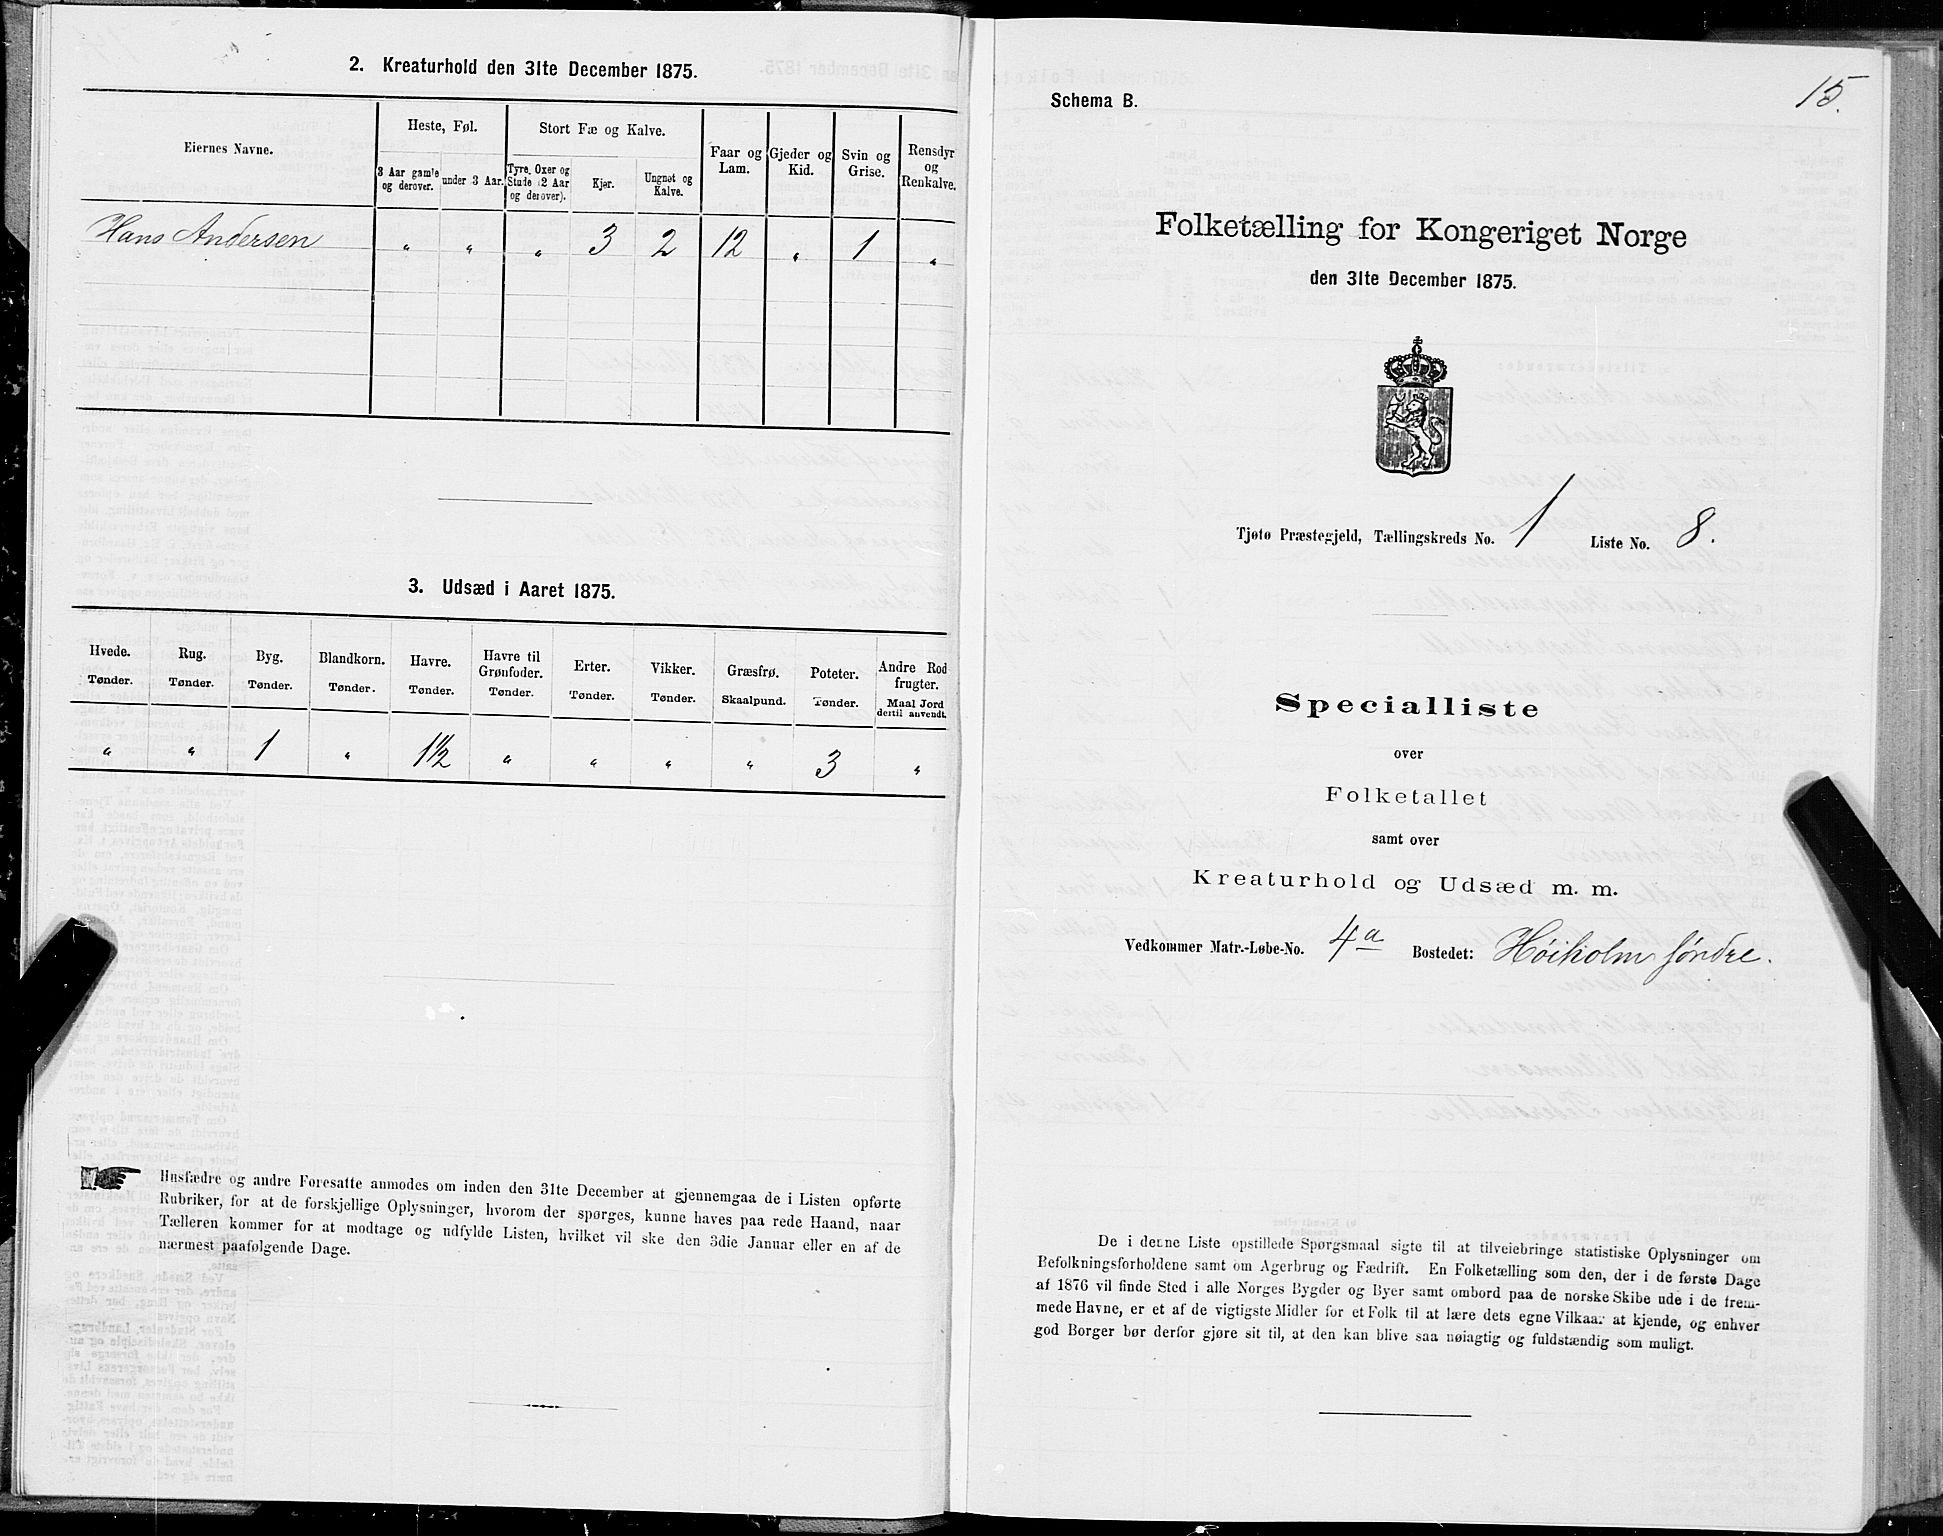 2. Kreaturhold den 31te December 1875.
Eiernes Navne.
Heste, Føl.
Stort Fæ og Kalve.
Faar og Lam.
Gjeder og Kid.
Svin og Grise.
Rensdyr og Renkalve.
3 Aar gamle og derover.
under 3 Aar.
Tyre, Oxer og Stude (2 Aar og derover).
Kjør.
Ungnøt og Kalve.
Hans Andersen " " " 3 2 12 " 1 "
3. Udsæd i Aaret 1875.
Hvede. Rug. Byg. Blandkorn. Havre. Havre til Grønfoder. Erter. Vikker. Græsfrø. Poteter. Andre Rodfrugter.
Tønder. Tønder. Tønder. Tønder. Tønder. Tønder. Tønder. Tønder. Skaalpund. Tønder. Maal Jord dertil anvendt.
" " 1 " 1 1/2 " " " " 3 "
Husfædre og andre Foresatte anmodes om inden den 31te December at gjennemgaa de i Listen opførte
Rubriker, for at de forskjellige Oplysninger, hvorom der spørges, kunne haves paa rede Haand, naar
Tælleren kommer for at modtage og udfylde Listen, hvilket vil ske den 3die Januar eller en af de
nærmest paafølgende Dage.
15.
Schema B.
Folketælling for Kongeriget Norge
den 31te December 1875.
Tjøtø Præstegjeld, Tællingskreds No. 1 Liste No. 8.
Specialliste
over
Folketallet
samt over
Kreaturhold og Udsæd m. m.
Vedkommer Matr.-Løbe-No. 4a Bostedet: Høiholm søndre.
De i denne Liste opstillede Spørgsmaal sigte til at tilveiebringe statistiske Oplysninger om
Befolkningsforholdene samt om Agerbrug og Fædrift. En Folketælling som den, der i de første Dage
af 1876 vil finde Sted i alle Norges Bygder og Byer samt ombord paa de norske Skibe ude i de frem-
mede Havne, er et af de vigtigste Midler for et Folk til at lære dets egne Vilkaar at kjende, og enhver
god Borger bør derfor gjøre sit til, at den kan blive saa nøiagtig og fuldstændig som muligt.